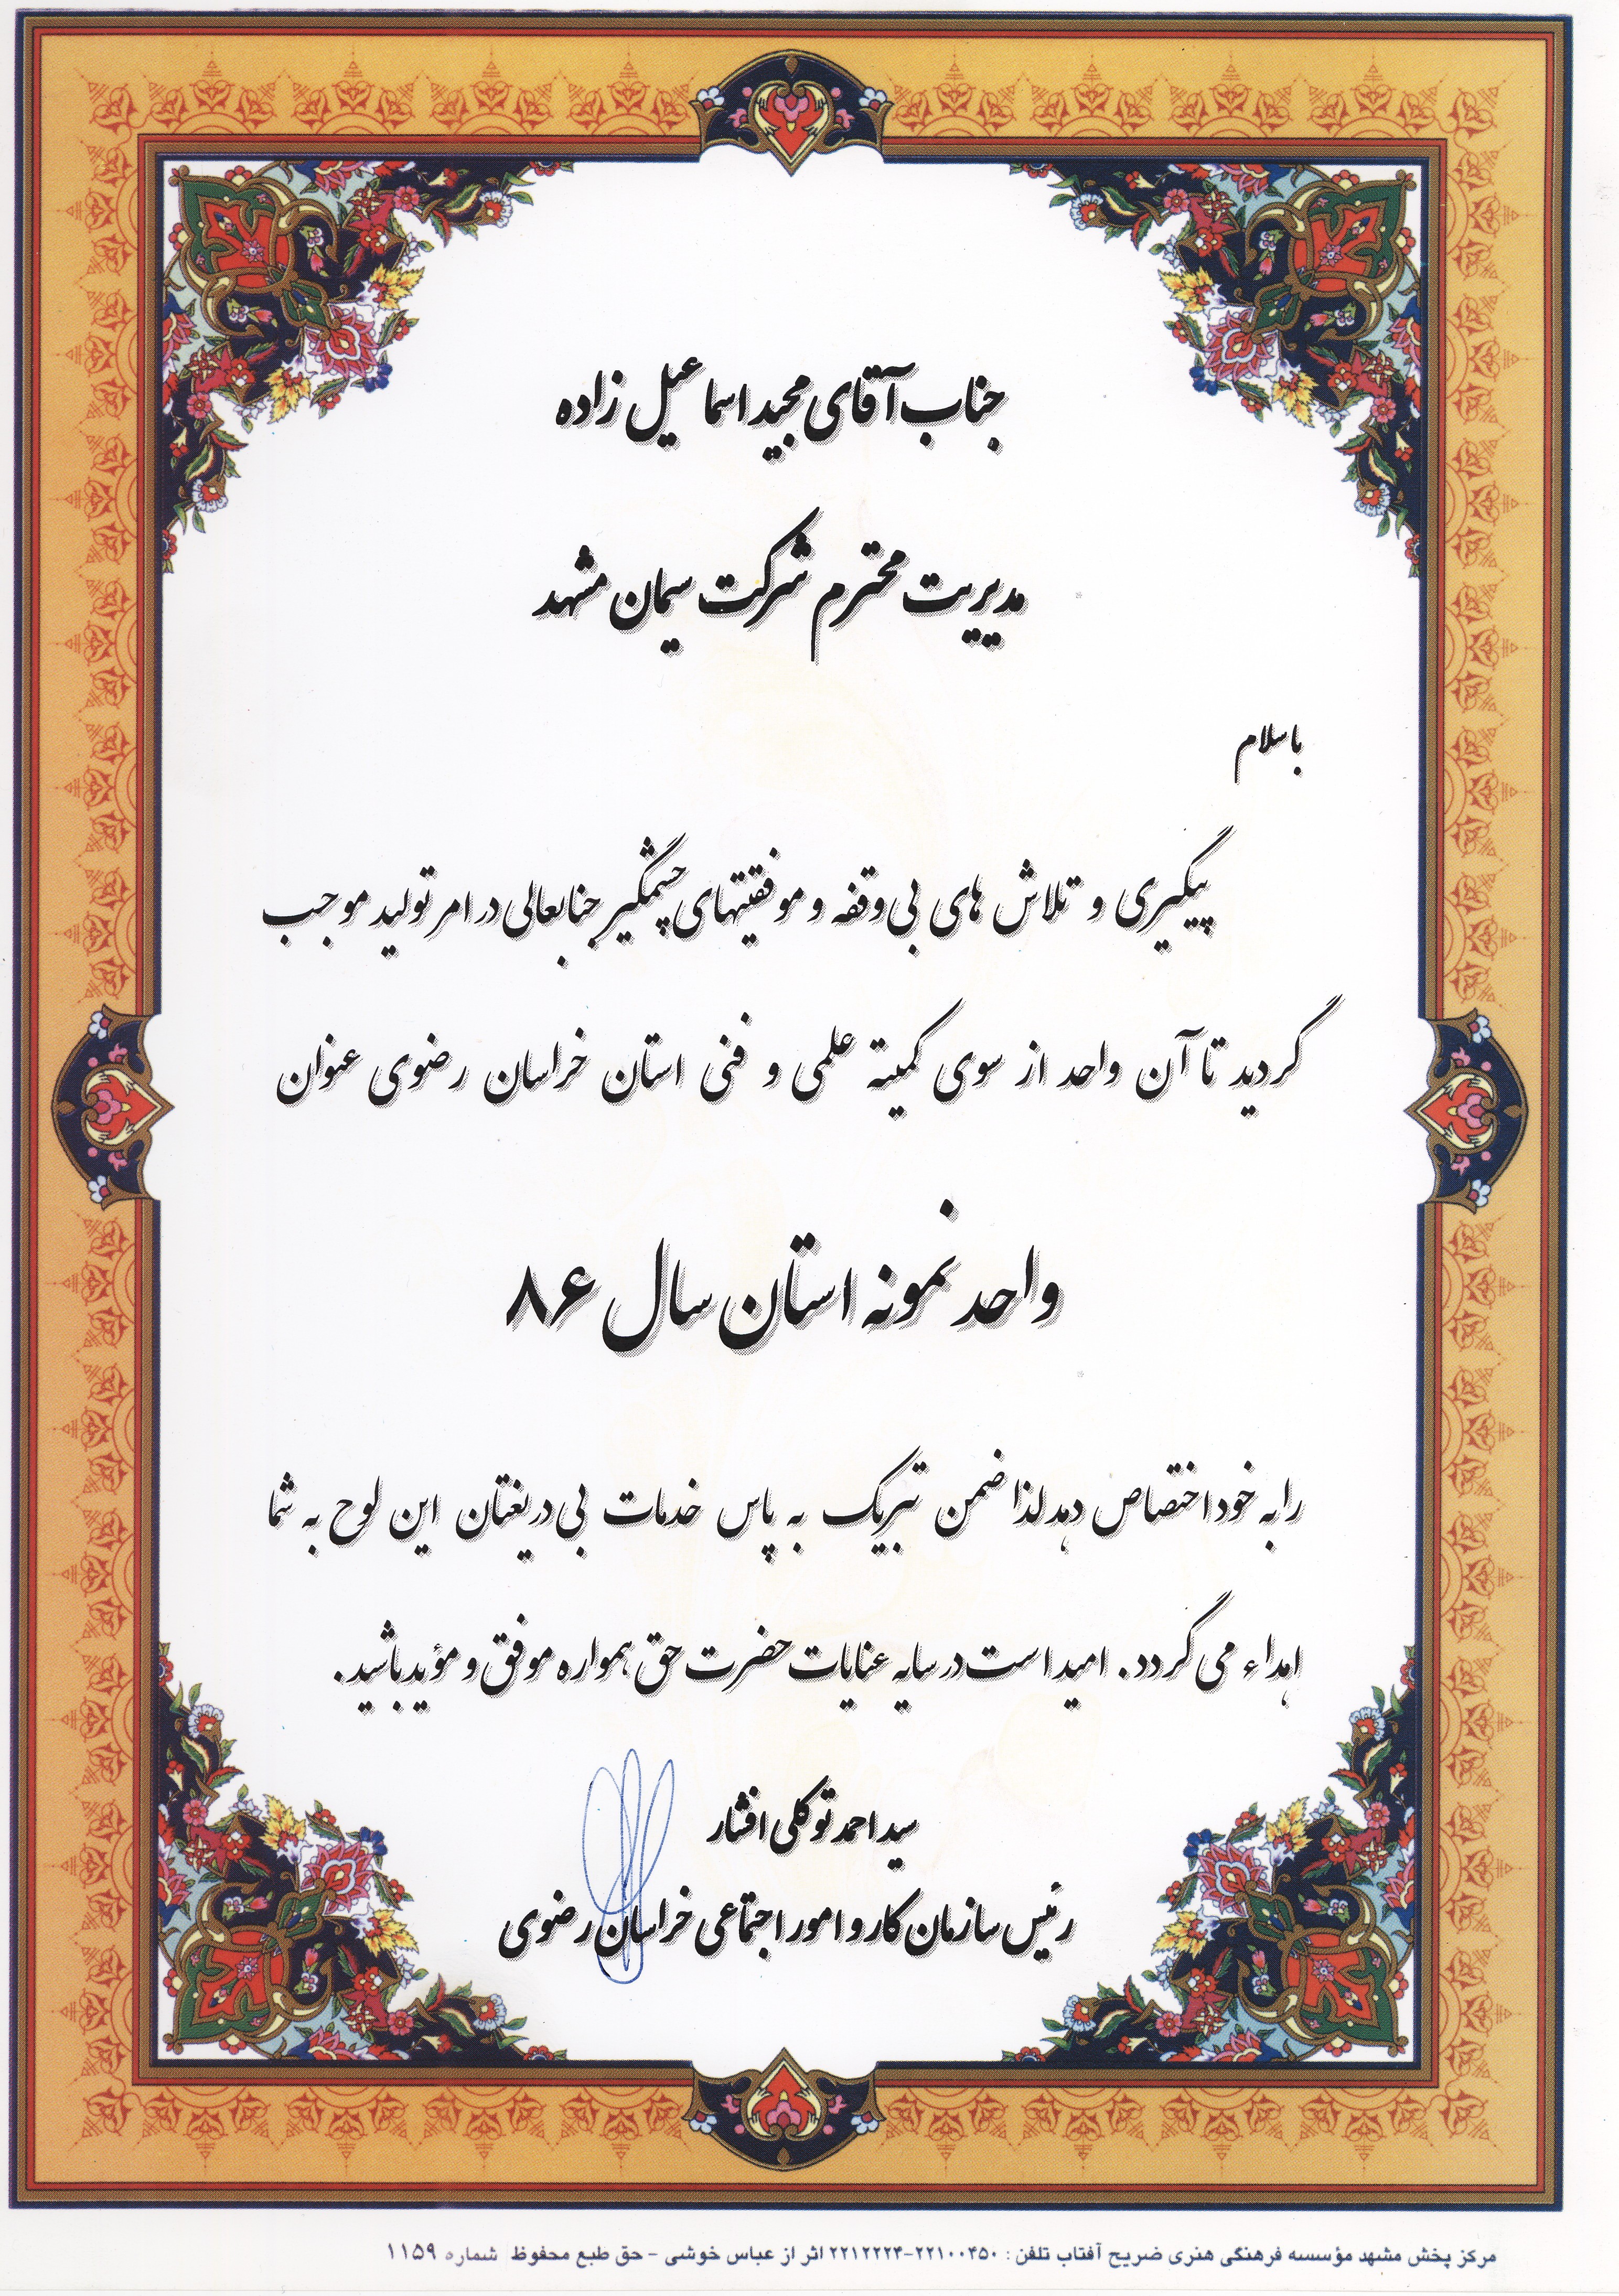 جناب آقای مجید اسماعیل زاده
مدیریت محترم شرکت سیمان مشهد
باسلام
پیگیری و تلاش های بی وقفه و موفقیتهای چشمگیر جنابعالی در امر تولید موجب
گردید تا آن واحد از سوی کمیته علمی و فنی استان خراسان رضوی عنوان
واحد نمونه استان سال ۸۶
را به خود اختصاص دهد لذا ضمن تبریک به پاس خدمات بی دریغتان این لوح به شما
اهداء می گردد. امید است در سایه عنایات حضرت حق همواره موفق و مؤید باشید.
سید احمد توکلی افشار
رئیس سازمان کار و امور اجتماعی خراسان رضوی
مرکز پخش مشهد مؤسسه فرهنگی هنری ضریح آفتاب تلفن : ۲۲۱۰۰۴۵۰-۲۲۱۲۲۲۴ اثر از عباس خوشی - حق طبع محفوظ شماره ۱۱۵۹